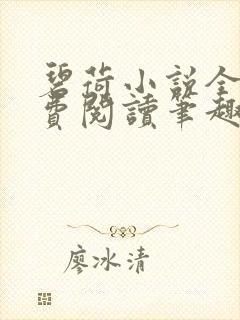 碧荷小说全
费閱讀筆趣
廖冰清